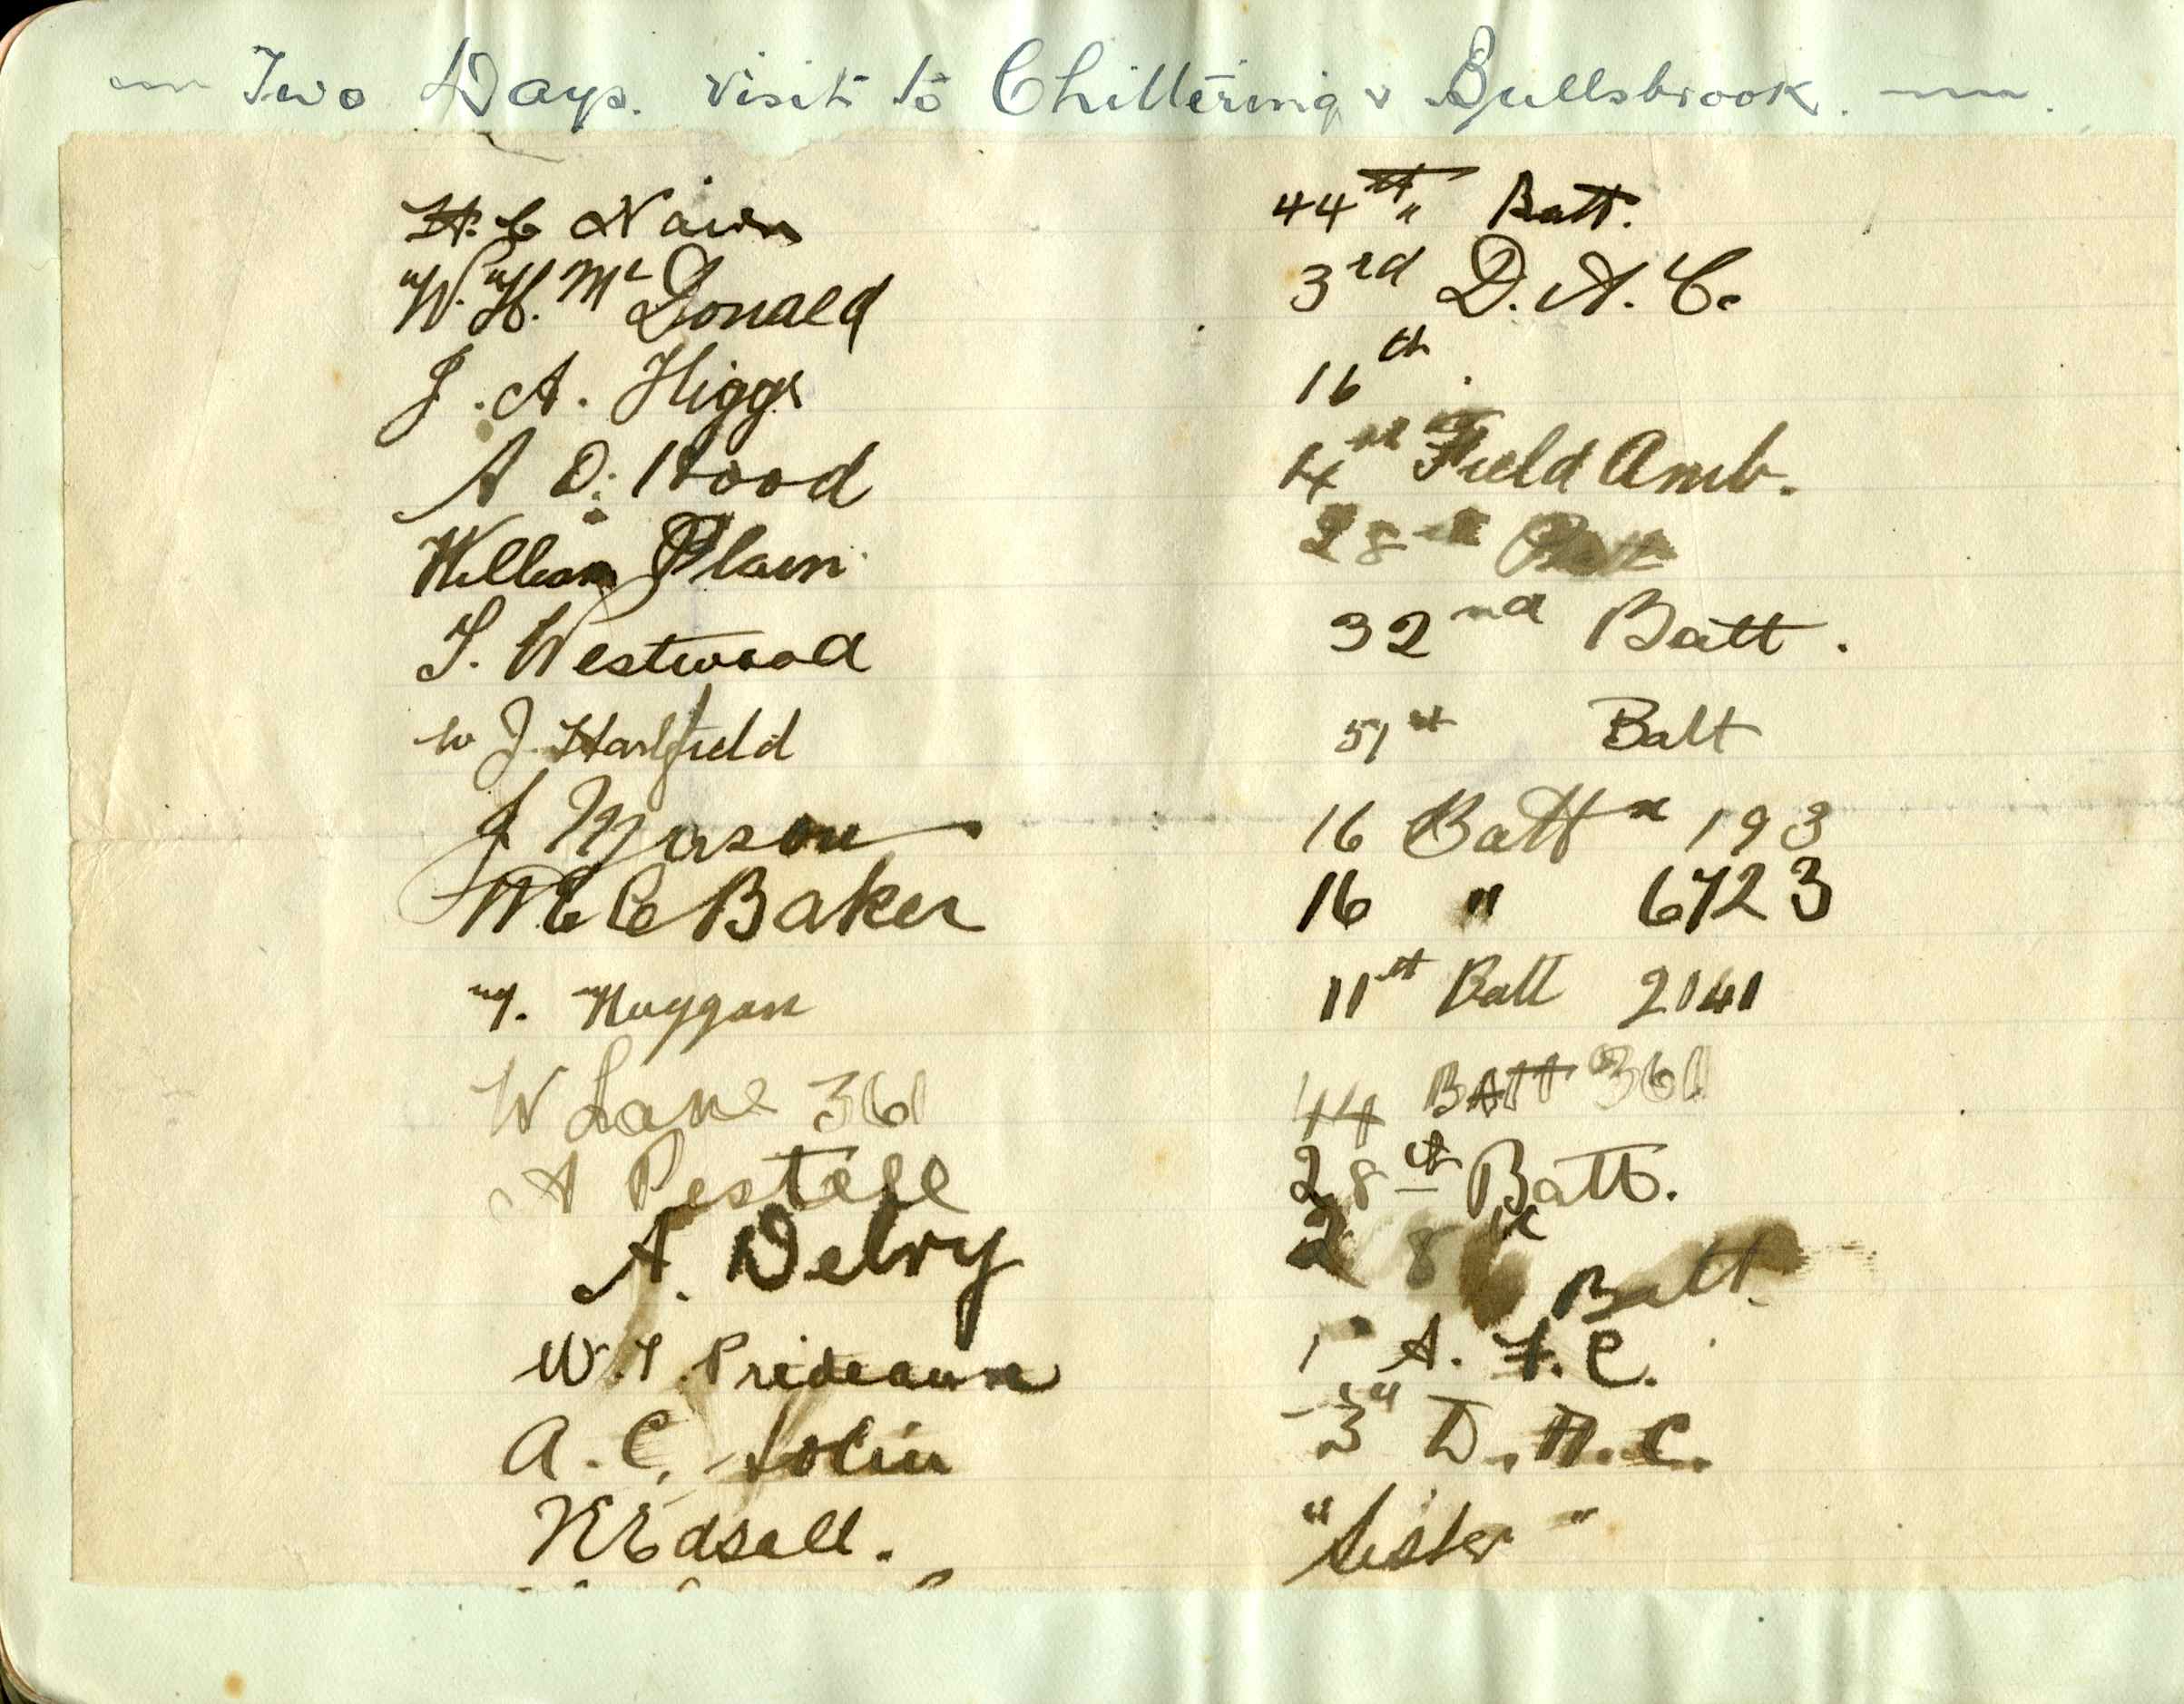 Two Days. visit to Chittering & Bullsbrook.
H. C Nairn 44th Batt.
W. H. Mc Donald 3rd D. A. C.
J. A. Higgs 16th
A O. Hood 4th Field Amb.
William Plain 28th Batt
T. Westwood 32nd Batt.
W J. Hartfield 51st Batt
J Mason 16 Battn 193
Baker 16 " 6723
Nuggan 11th Batt 2141
W Lane 361 44 BATT 361
A Pestell 28th Batt.
A. Delvy 28th Batt.
W. T. Prideaux 1 A. F. C.
A. C. 3rd D. A. C.
Edsall. "Sister"